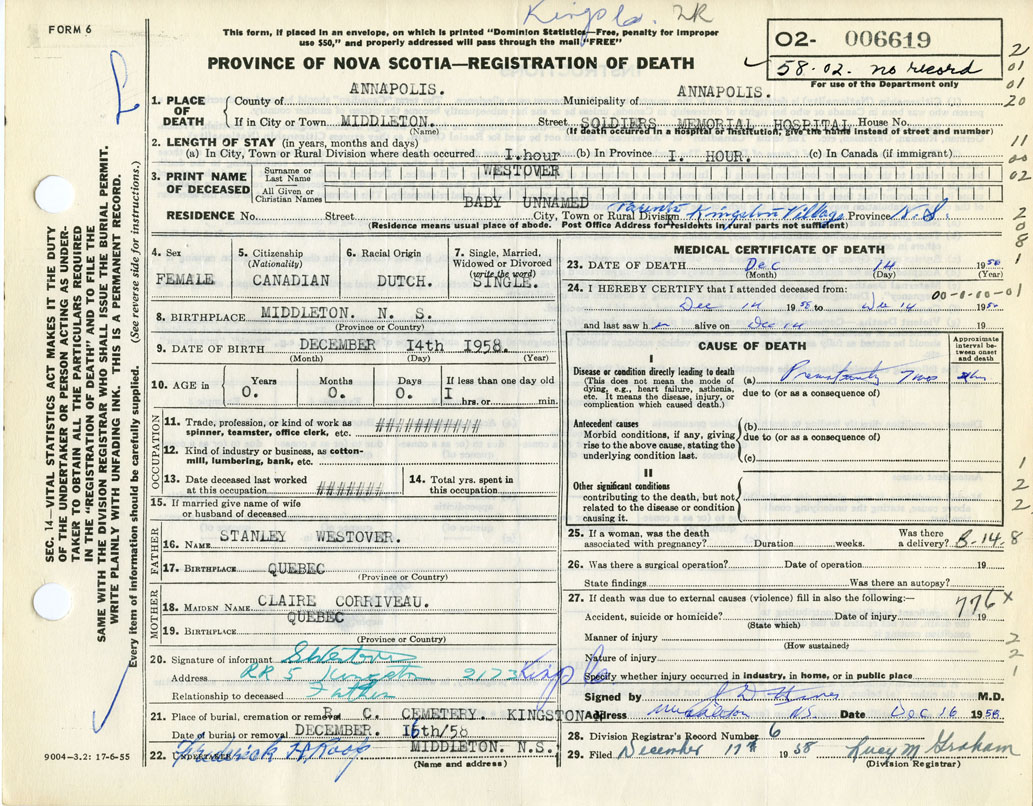 Kingsla. 2R
FORM 6
This form, if placed in an envelope, on which is printed "Dominion Statistics—Free, penalty for improper
use $50," and properly addressed will pass through the mail "FREE"
02- 006619
58-02. no record
For use of the Department only
PROVINCE OF NOVA SCOTIA—REGISTRATION OF DEATH
2
01
01
20
11
00
02
2
0
8
1
1. PLACE OF DEATH
County of ANNAPOLIS. Municipality of ANNAPOLIS.
If in City or Town MIDDLETON. Street SOLDIERS MEMORIAL HOSPITAL House No.
(Name) (If death occurred in a hospital or institution, give the name instead of street and number)
2. LENGTH OF STAY (in years, months and days)
(a) In City, Town or Rural Division where death occurred I.hour (b) In Province I. HOUR. (c) In Canada (if immigrant)
3. PRINT NAME OF DECEASED
Surname or Last Name WESTOVER
All Given or Christian Names BABY UNNAMED
RESIDENCE No. Street City, Town or Rural Division Parents Kingston Village Province N.S.
(Residence means usual place of abode. Post Office Address for residents in rural parts not sufficient)
SEC. 14—VITAL STATISTICS ACT MAKES IT THE DUTY
OF THE UNDERTAKER OR PERSON ACTING AS UNDER-
TAKER TO OBTAIN ALL THE PARTICULARS REQUIRED
IN THE "REGISTRATION OF DEATH" AND TO FILE THE
SAME WITH THE DIVISION REGISTRAR WHO SHALL ISSUE THE BURIAL PERMIT.
WRITE PLAINLY WITH UNFADING INK. THIS IS A PERMANENT RECORD.
Every item of information should be carefully supplied. (See reverse side for instructions.)
4. Sex
FEMALE
5. Citizenship
(Nationality)
CANADIAN
6. Racial Origin
DUTCH.
7. Single, Married,
Widowed or Divorced
(write the word)
SINGLE.
8. BIRTHPLACE MIDDLETON. N. S.
(Province or Country)
9. DATE OF BIRTH DECEMBER I4th I958.
(Month) (Day) (Year)
10. AGE in Years Months Days If less than one day old
0. 0. 0. I hrs. or min.
OCCUPATION
11. Trade, profession, or kind of work as ###########
spinner, teamster, office clerk, etc.
12. Kind of industry or business, as cotton-
mill, lumbering, bank, etc.
13. Date deceased last worked
at this occupation #######
14. Total yrs. spent in
this occupation
15. If married give name of wife
or husband of deceased
FATHER
16. NAME STANLEY WESTOVER.
17. BIRTHPLACE QUEBEC
(Province or Country)
MOTHER
18. MAIDEN NAME CLAIRE CORRIVEAU.
19. BIRTHPLACE QUEBEC
(Province or Country)
20. Signature of informant S Westover
Address RR 5 Kingston 2173
Relationship to deceased Father
21. Place of burial, cremation or removal R. C. CEMETERY. KINGSTON
Date of burial or removal DECEMBER. I6th/58
22. UNDERTAKER Fredrick H. Roop MIDDLETON. N.S.
(Name and address)
9004—3.2: 17-6-55
MEDICAL CERTIFICATE OF DEATH
23. DATE OF DEATH Dec 14 1958
(Month) (Day) (Year)
24. I HEREBY CERTIFY that I attended deceased from: 00-0-00-01
Dec 14 1958 to Dec 14 1958
and last saw h er alive on Dec 14 19
CAUSE OF DEATH
Approximate interval between onset and death
I
Disease or condition directly leading to death
(This does not mean the mode of
dying, e.g., heart failure, asthenia,
etc. It means the disease, injury, or
complication which caused death.)
(a) Prematurity
due to (or as a consequence of)
Antecedent causes
Morbid conditions, if any, giving
rise to the above cause, stating the
underlying condition last.
(b)
due to (or as a consequence of)
(c)
II
Other significant conditions
contributing to the death, but not
related to the disease or condition
causing it.
1
2
2
25. If a woman, was the death
associated with pregnancy? Duration weeks. Was there
a delivery? B-14-8
26. Was there a surgical operation? Date of operation 19
State findings Was there an autopsy?
27. If death was due to external causes (violence) fill in also the following:— 776 x
Accident, suicide or homicide? Date of injury 19
(State which)
Manner of injury
(How sustained)
Nature of injury
Specify whether injury occurred in industry, in home, or in public place
2
2
1
Signed by M.D.
Address Middleton N.S. Date Dec 16 1958
28. Division Registrar's Record Number 6
29. Filed December 17th 1958 Lucy M. Graham
(Division Registrar)